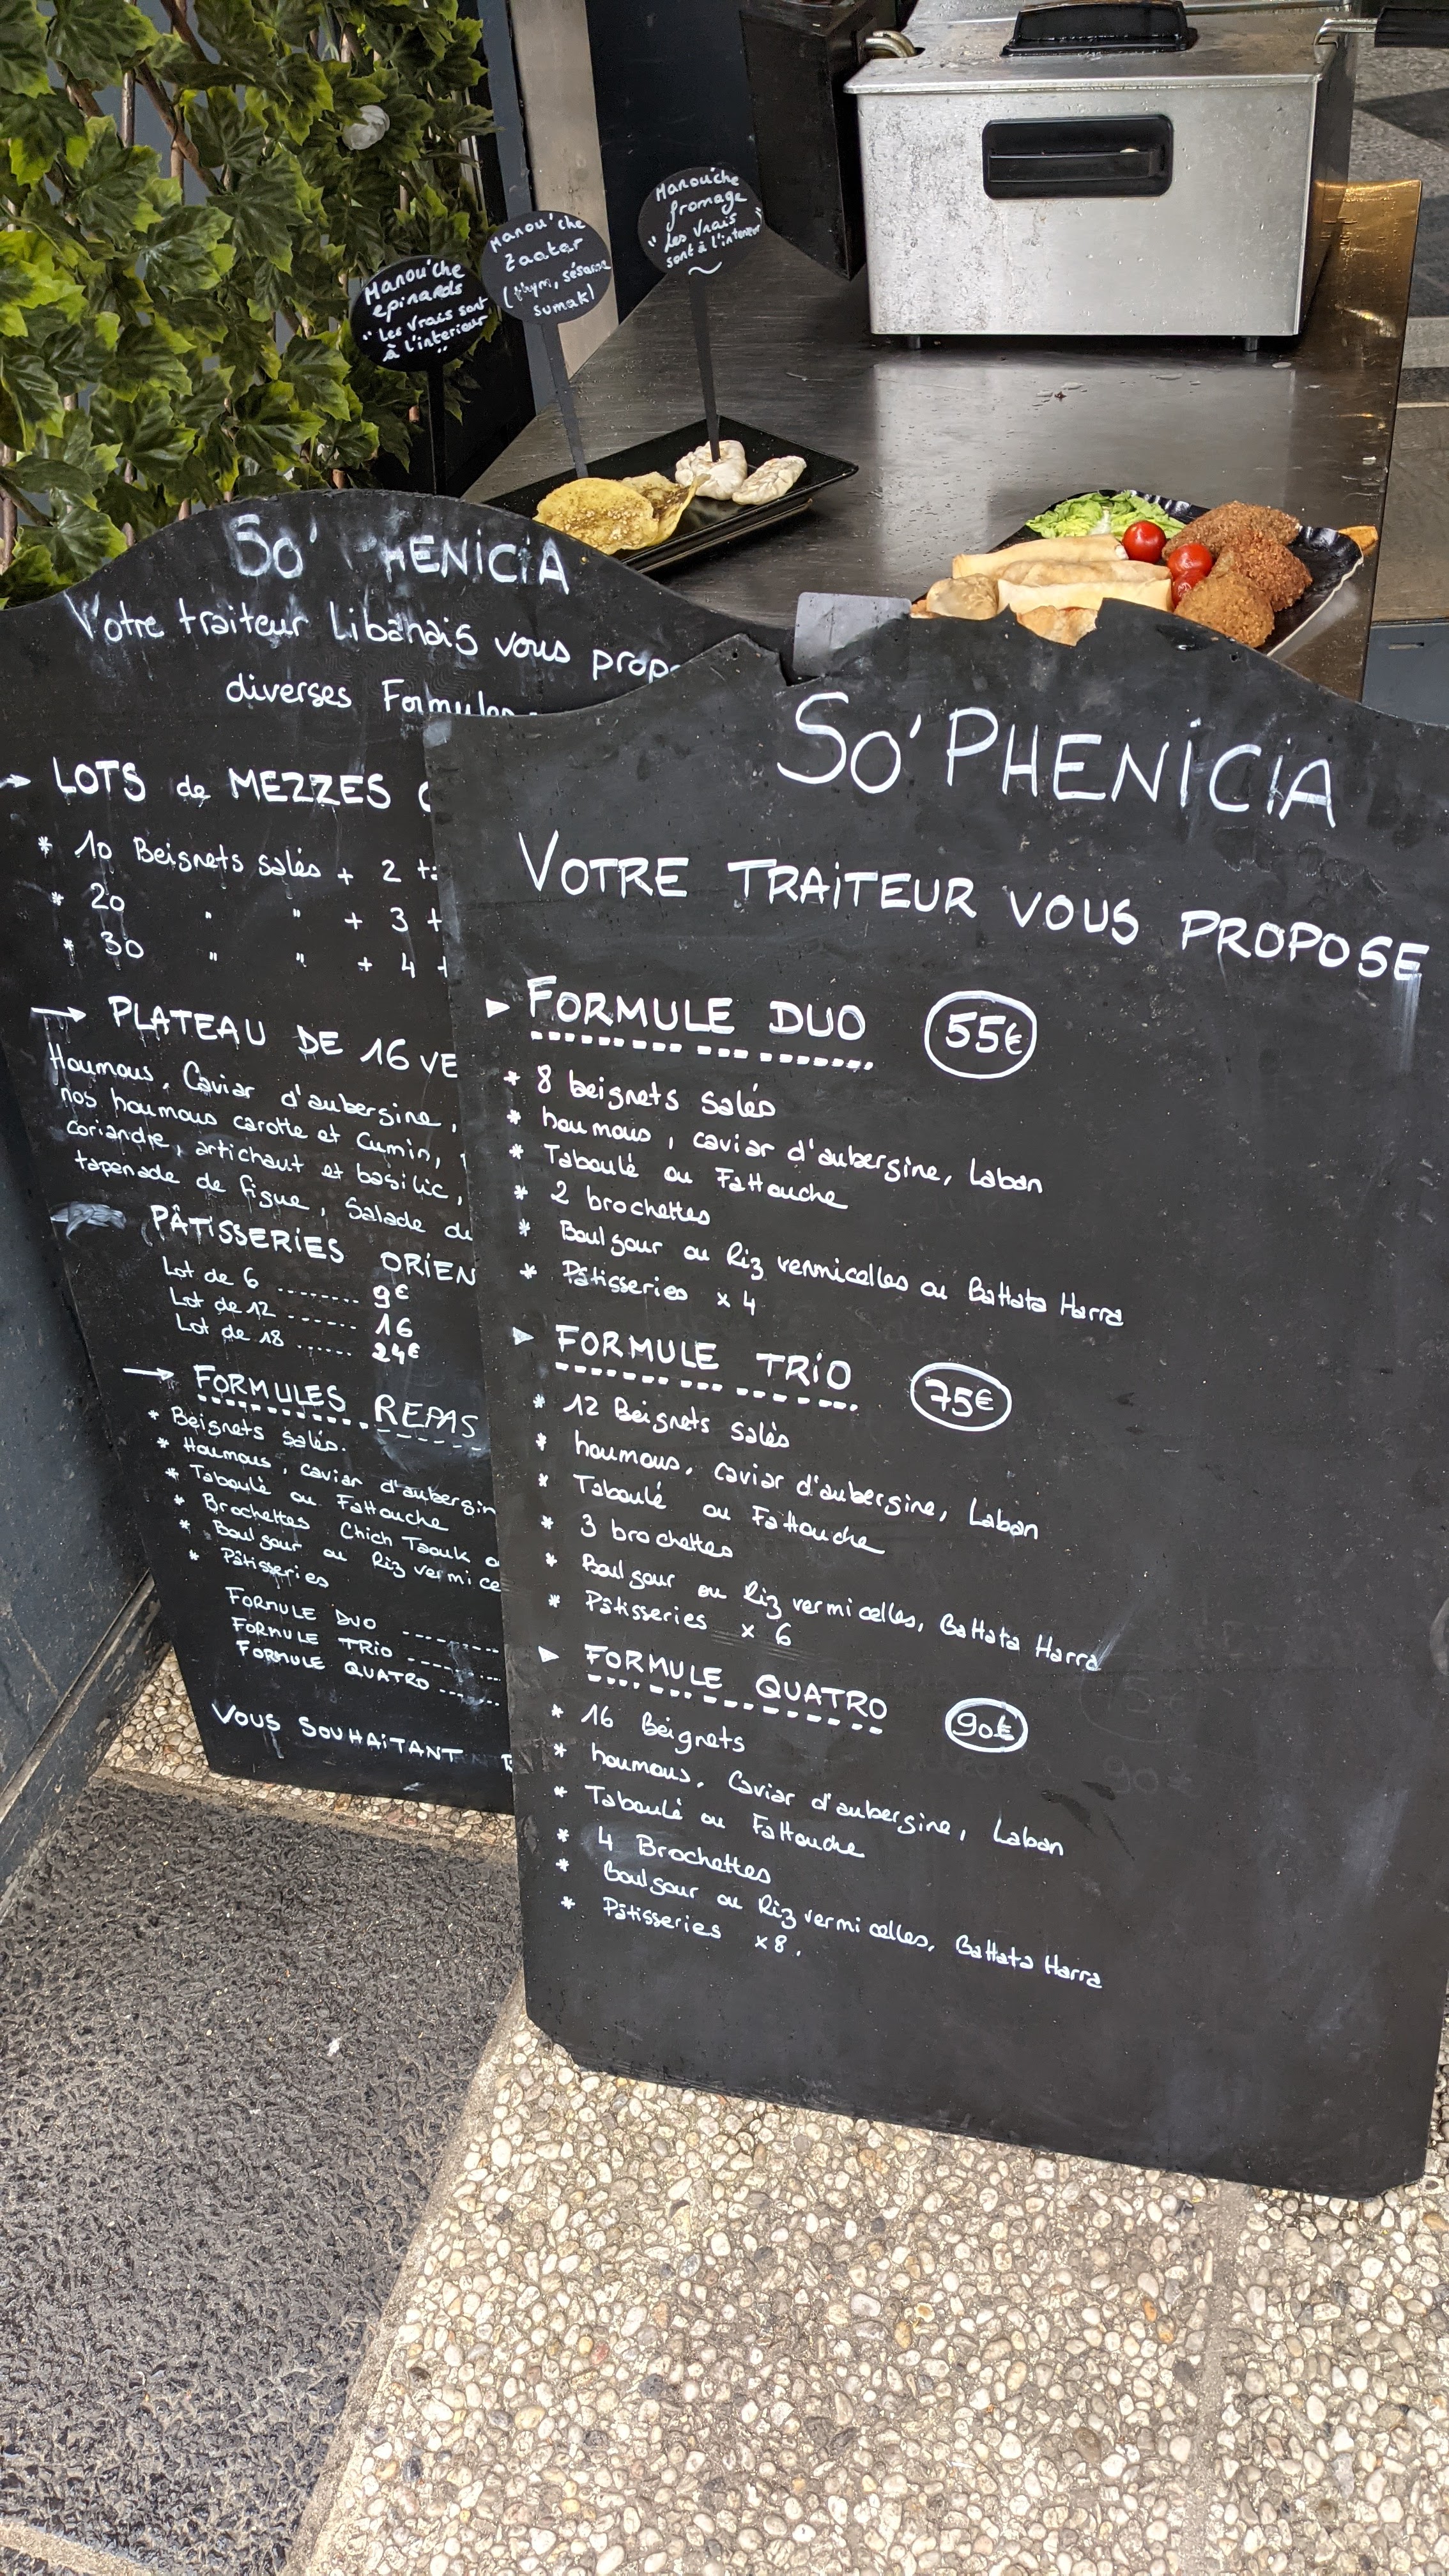 Manou'che
épinards
"Les vrais sont
à l'interieur"
Manou'che
zaatar
(thym, sésame
sumak)
Manou'che
fromage
"Les vrais
sont à l'interieur"
SO' HENICIA
Votre traiteur Libanais vous
diverses Formules
→ LOTS de MEZZES
* 10 Beignets salés + 2
* 20 " " + 3
* 30 " " + 4
→ PLATEAU DE 16
Houmous, Caviar d'aubergine,
nos houmous carotte et Cumin,
coriandre, artichaut et basilic,
tapenade de figue, Salade du
PÂTISSERIES ORIEN
Lot de 6 ........ 9€
Lot de 12 ....... 16
Lot de 18 ...... 24€
→ FORMULES REPAS
* Beignets salés.
* Houmous, caviar d'aubergin
* Taboulé ou Fattouche
* Brochettes Chich Taouk
* Boulgour ou Riz vermice
* Pâtisseries
FORMULE DUO
FORMULE TRIO
FORMULE QUATRO
VOUS SOUHAITANT
SO' PHENICIA
VOTRE TRAITEUR VOUS PROPOSE
► FORMULE DUO 55€
* 8 beignets salés
* houmous, caviar d'aubergine, Laban
* Taboulé ou Fattouche
* 2 brochettes
* Boulgour ou Riz vermicelles ou Battata Harra
* Pâtisseries x 4
► FORMULE TRIO 75€
* 12 Beignets salés
* houmous, caviar d'aubergine, Laban
* Taboulé ou Fattouche
* 3 brochettes
* Boulgour ou Riz vermicelles, Battata Harra
* Pâtisseries x 6
► FORMULE QUATRO 90€
* 16 Beignets
* houmous, Caviar d'aubergine, Laban
* Taboulé ou Fattouche
* 4 Brochettes
* Boulgour ou Riz vermicelles, Battata Harra
* Pâtisseries x8.